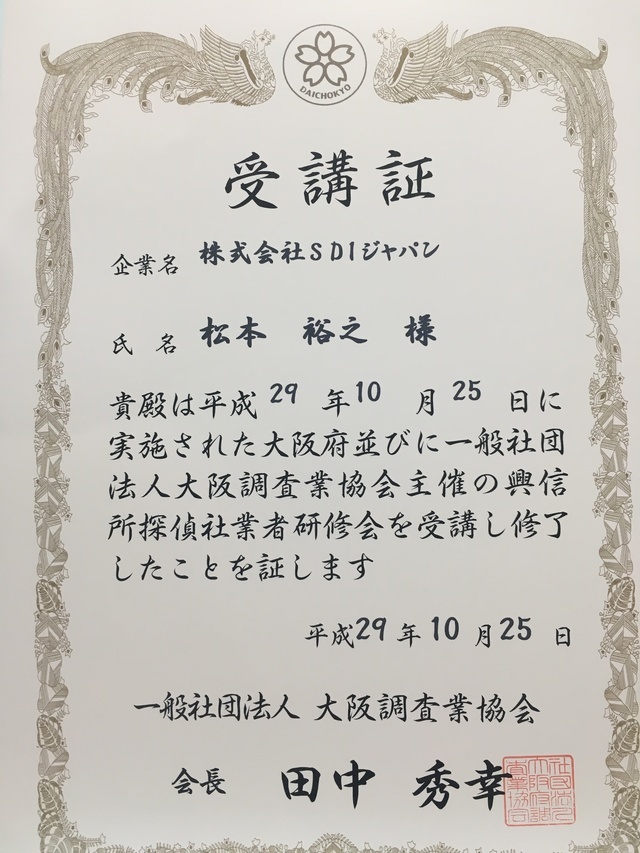 DAICHOKYO
受講証
企業名 株式会社SDIジャパン
氏名 松本 裕之 様
貴殿は平成 29 年10 月 25 日に
実施された大阪府並びに一般社団
法人大阪調査業協会主催の興信
所探偵社業者研修会を受講し修了
したことを証します
平成29年10月25日
一般社団法人 大阪調査業協会
会長 田中 秀幸